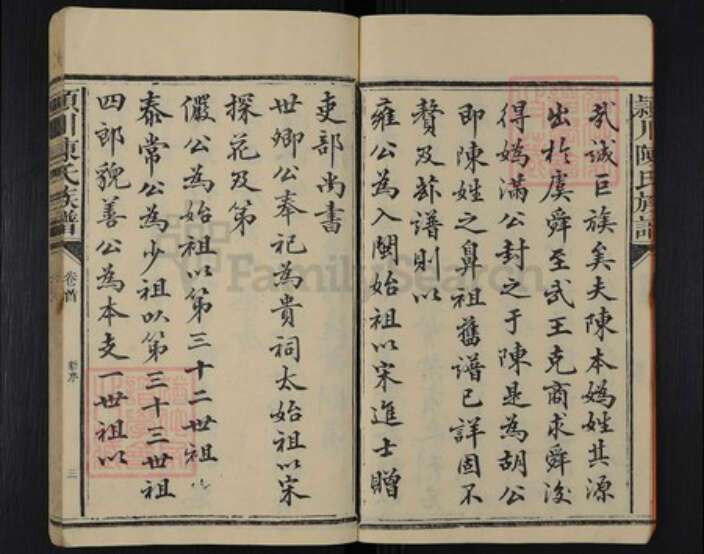 潁川陳氏族譜
哉誠巨族矣夫陳本媯姓其源
出於虞舜至武王克商求舜後
得媯滿公封之于陳是為胡公
即陳姓之鼻祖舊譜已詳固不
贅及新譜則以
雍公為入閩始祖以宋進士贈
吏部尚書
世卿公奉祀為貴祠太始祖以宋
探花及第
儼公為始祖以第三十二世祖
泰常公為少祖以第三十三世祖
四郎貌善公為本支一世祖以
潁川陳氏族譜
卷首
新序
三
FamilySearch